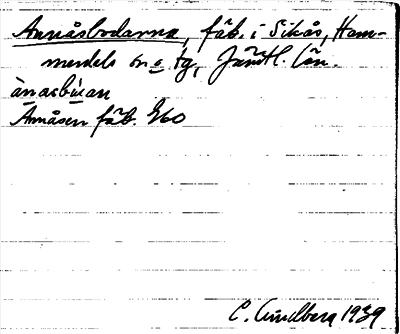 Annåsbodarna, fäb. i Sikås, Ham-
merdals sn o. tg, Jämtl. län.
ànasbúan
Ånnåsen fäb. Eko
C. Lindberg 1939